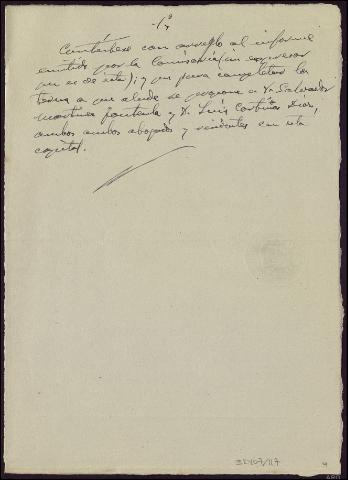 -1ª
Contéstese con arreglo al informe
emitido por la Comisaría (sin expresar
que es de ésta); y que para completar la
terna a que alude se propone a D. Salvador
Martínez Fontenla y D. Luis Cortiñas Díaz,
ambos ambos abogados y residentes en esta
capital.
32407/117
4